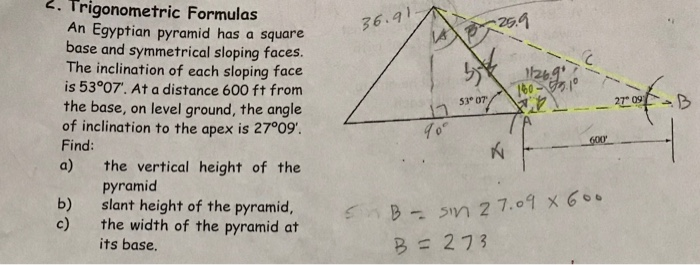 2. Trigonometric Formulas
An Egyptian pyramid has a square
base and symmetrical sloping faces.
The inclination of each sloping face
is 53°07'. At a distance 600 ft from
the base, on level ground, the angle
of inclination to the apex is 27°09'.
Find:
a) the vertical height of the
pyramid
b) slant height of the pyramid,
c) the width of the pyramid at
its base.
36.91
25.9
A
B
C
126.9°
180-
53°07'
27°09'
B
90°
A
600'
B = sin 27.09 x 600
B = 273